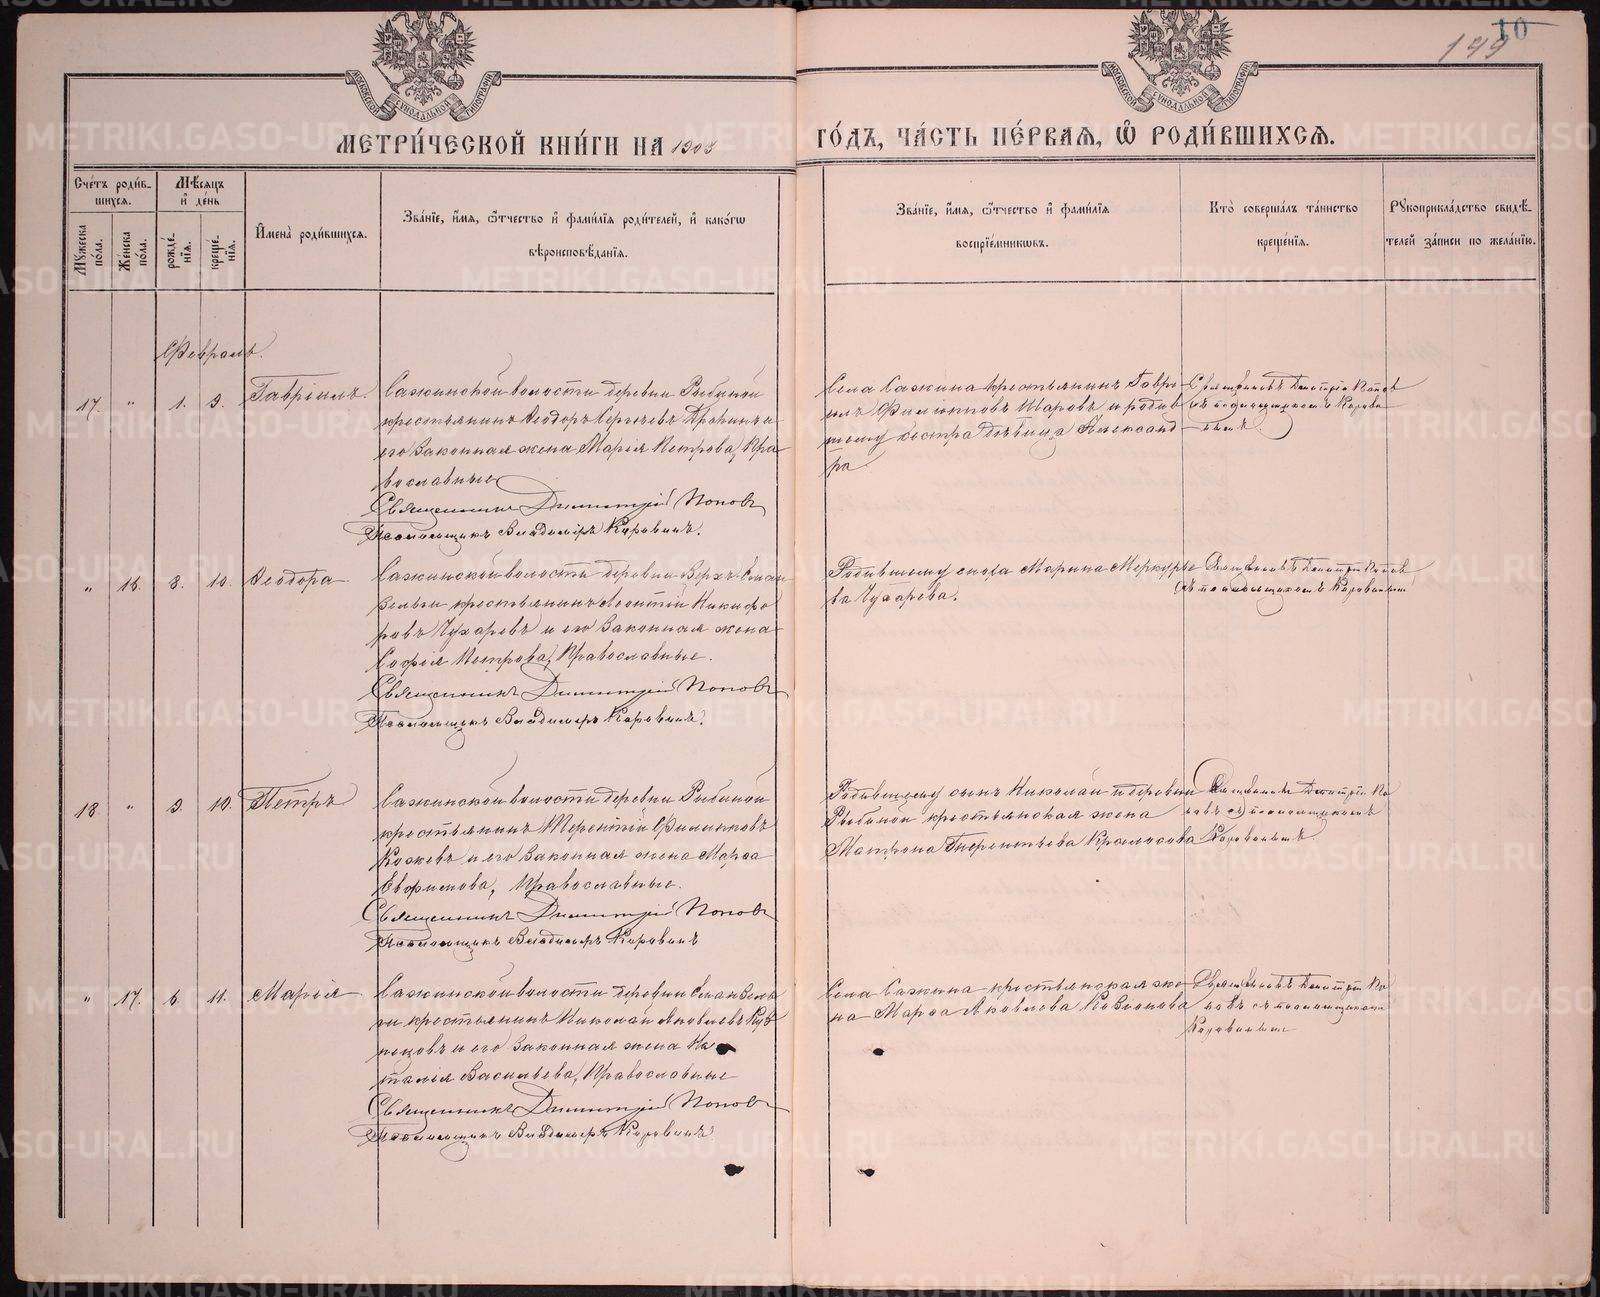 10
149
МОСКОВСКОЙ СѴНОДАЛЬНОЙ ТИПОГРАФІИ
МОСКОВСКОЙ СѴНОДАЛЬНОЙ ТИПОГРАФІИ
МЕТРИ́ЧЕСКОЙ КНИ́ГИ НА 190
ГО́ДЪ, ЧА́СТЬ ПЕ́РВАѦ, Ѡ҆ РОДИ́ВШИХСѦ.
Сче́тъ роди́в-
шихсѧ.
Мꙋ́жеска по́ла.
Же́нска по́ла.
Мѣ́сѧцъ и҆ де́нь
рожде́-
нїѧ.
креще́-
нїѧ.
И҆мена̀ роди́вшихсѧ.
Зва́нїе, и҆́мѧ, ѻ҆́тчество и҆ фами́лїѧ роди́телей, и҆ како́гѡ
вѣроисповѣ́данїѧ.
Зва́нїе, и҆́мѧ, ѻ҆́тчество и҆ фами́лїѧ
воспрїе́мникѡвъ.
Кто̀ соверша́лъ та́инство
креще́нїѧ.
Рꙋкоприкла́дство свидѣ́-
телей за́писи по жела́нїю.
Февраль.
17. " 1. 9. Гавріилъ.
Сажинской волости деревни Рыбиной
крестьянинъ Ѳеодоръ Сергѣевъ и
его законная жена Марія Петрова, Пра-
вославные
Священникъ Димитрій Поповъ
Псаломщикъ Владиміръ Коровинъ.
Села Сажина крестьянинъ Гаврі-
илъ Филипповъ Шаровъ и родив-
шему сестра дѣвица Александ-
ра.
Священникъ Димитрій Поповъ
съ псаломщикомъ Корови-
нымъ.
" 16. 8. 10. Ѳеодора
Сажинской волости деревни Верхъ-
крестьянинъ Леонтій Никифо-
ровъ Чухаревъ и его законная жена
Софія Петрова, Православные.
Священникъ Димитрій Поповъ
Псаломщикъ Владиміръ Коровинъ.
Родившему сноха Марина Меркурье-
ва Чухарева.
Священникъ Димитрій Поповъ
съ псаломщикомъ Коровинымъ
18. " 9. 10. Петръ
Сажинской волости деревни Рыбиной
крестьянинъ Терентій Филипповъ
и его законная жена Марѳа
Евфимова, Православные.
Священникъ Димитрій Поповъ
Псаломщикъ Владиміръ Коровинъ
Родившему сынъ Николай и деревни
Рыбиной крестьянская жена
Матрона Терентьева
Священникъ Димитрій По-
повъ съ псаломщикомъ
Коровинымъ
" 17. 6. 11. Марія
Сажинской волости деревни
крестьянинъ Николай Яковлевъ Куз-
нецовъ и его законная жена На-
талія Васильева, Православные
Священникъ Димитрій Поповъ
Псаломщикъ Владиміръ Коровинъ
Села Сажина крестьянская же-
на Марѳа Яковлева
Священникъ Димитрій По-
повъ съ псаломщикомъ
Коровинымъ
METRIKI.GASO-URAL.RU